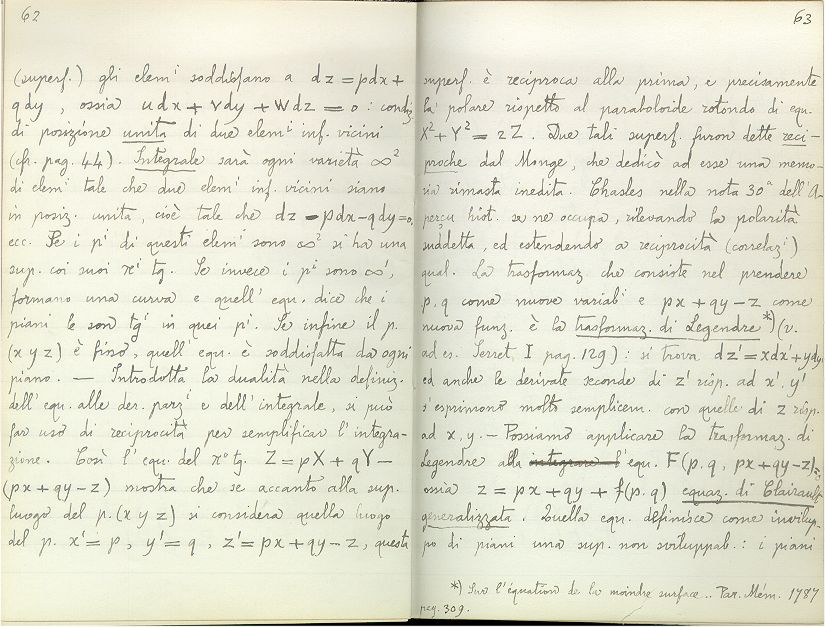 62
(superf.) gli elemⁱ soddisfano a dz = pdx +
qdy, ossia udx + vdy + wdz = 0 : condiz.
di posizione unita di due elemⁱ inf. vicini
(cfr. pag. 44). Integrale sarà ogni varietà ∞²
di elemⁱ tale che due elemⁱ inf. vicini siano
in posiz. unita, cioè tale che dz - pdx - qdy = 0,
ecc. Se i pⁱ di questi elemⁱ sono ∞² si ha una
sup. coi suoi πⁱ tg. Se invece i pⁱ sono ∞¹,
formano una curva e quell' equ. dice che i
piani le son tgⁱ in quei pⁱ. Se infine il p.
(x y z) è fisso, quell' equ. è soddisfatta da ogni
piano. — Introdotta la dualità nella definiz.
dell' equ. alle der. parzⁱ e dell' integrale, si può
far uso di reciprocità per semplificar l' integra-
zione. Così l' equ. del πº tg. Z = pX + qY -
(px + qy - z) mostra che se accanto alla sup.
luogo del p. (x y z) si considera quella luogo
del p. x' = p, y' = q, z' = px + qy - z, questa
63
superf. è reciproca alla prima, e precisamente
la polare rispetto al paraboloide rotondo di equ.
X² + Y² = 2Z. Due tali superf. furon dette reci-
proche dal Monge, che dedicò ad esse una memo-
ria rimasta inedita. Chasles nella nota 30ª dell' A-
perçu hist. se ne occupa, rilevando la polarità
suddetta, ed estendendo a reciprocità (correlazⁱ)
qual. La trasformaz. che consiste nel prendere
p, q come nuove variabⁱ e px + qy - z come
nuova funz. è la trasformaz. di Legendre *) (v.
ad es. Serret, I pag. 129) : si trova dz' = xdx' + ydy',
ed anche le derivate seconde di z' risp. ad x', y'
s' esprimono molto semplicem. con quelle di z risp.
ad x, y. — Possiamo applicare la trasformaz. di
Legendre alla integrare l' equ. F(p, q, px + qy - z) = 0,
ossia z = px + qy + f(p, q) equaz. di Clairault
generalizzata. Quella equ. definisce come invilup-
po di piani una sup. non sviluppab. : i piani
*) Sur l'équation de la moindre surface.. Par. Mém. 1787
pag. 309.